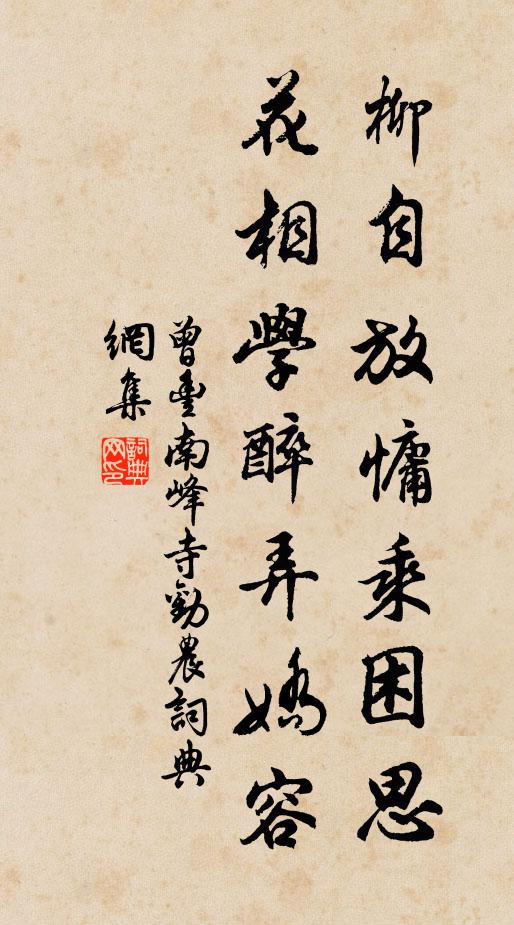 柳自放慵乘困思
花相學醉弄嬌容
曾豐南峰寺勸農詞典
網集
詞典网印